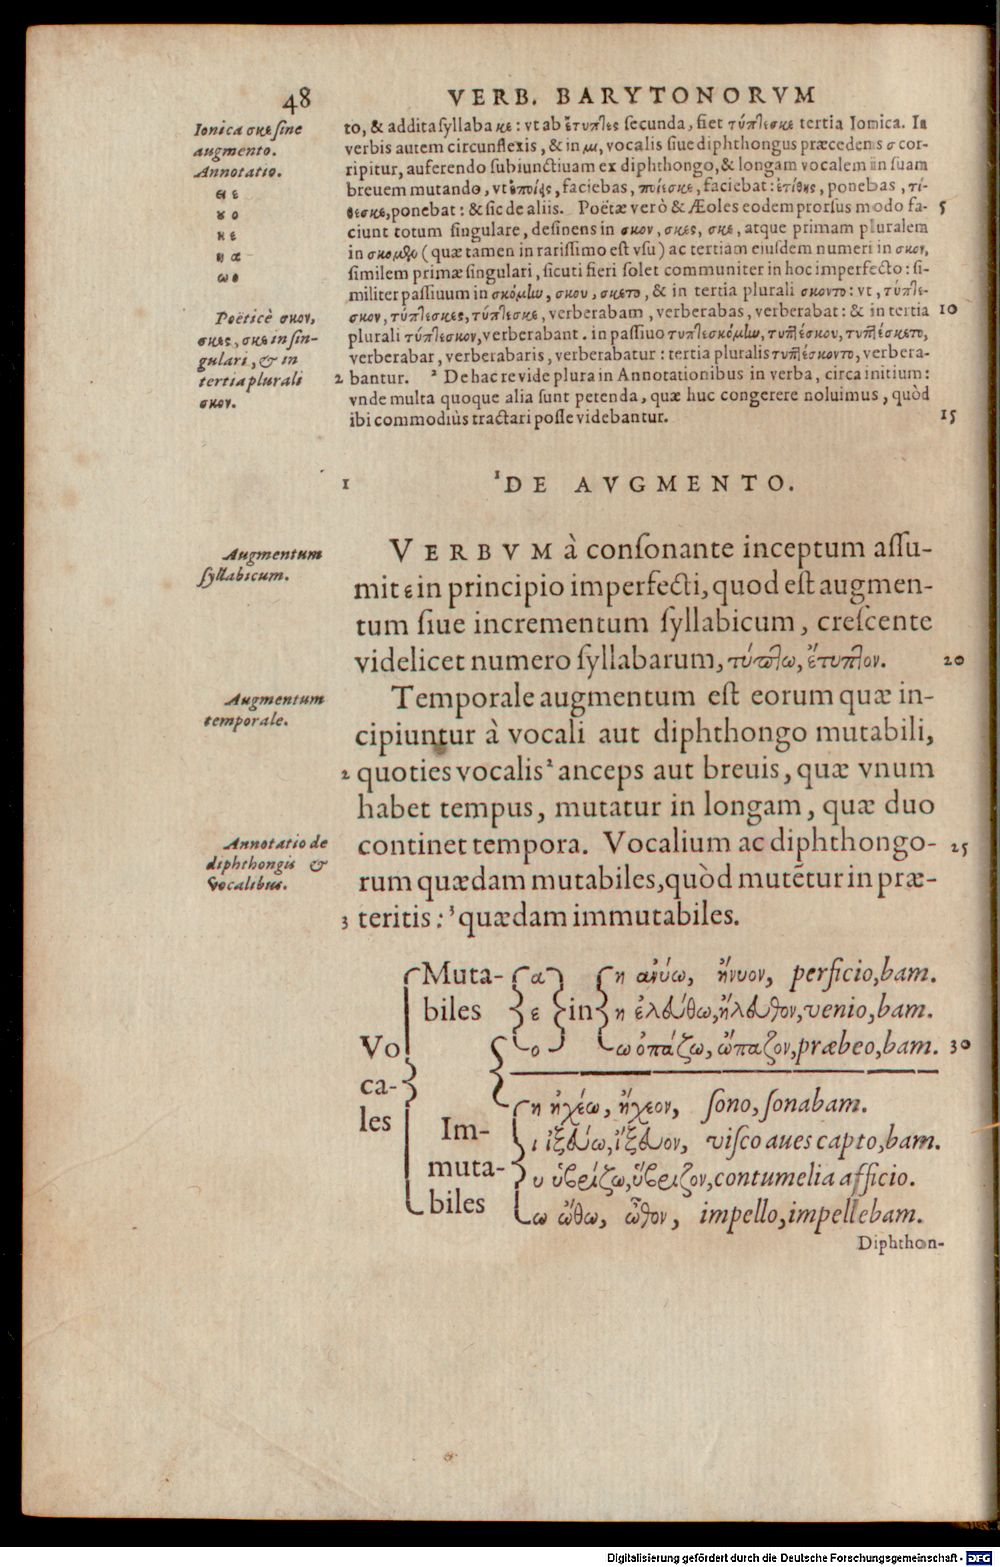 48
VERB. BARYTONORVM
Ionica σκε sine
augmento.
Annotatio.
ει ε
ου ο
η ε
η α
ω ο
Poëticè σκον,
σκες, σκε in sin-
gulari, & in
tertia plurali
σκον.
to, & addita syllaba κε: vt ab ἔτυπτες secunda, fiet τύπτεσκε tertia Ionica. In
verbis autem circunflexis, & in μι, vocalis siue diphthongus præcedens σ cor-
ripitur, auferendo subiunctiuam ex diphthongo, & longam vocalem in suam
breuem mutando, vt ἐποίεις, faciebas, ποίεσκε, faciebat: ἐτίθης, ponebas, τί-
θεσκε, ponebat: & sic de aliis. Poëtæ verò & Æoles eodem prorsus modo fa- 5
ciunt totum singulare, desinens in σκον, σκες, σκε, atque primam pluralem
in σκομεν (quæ tamen in rarissimo est vsu) ac tertiam eiusdem numeri in σκον,
similem primæ singulari, sicuti fieri solet communiter in hoc imperfecto: si-
militer passiuum in σκόμην, σκου, σκετο, & in tertia plurali σκοντο: vt, τύπτε-
σκον, τύπτεσκες, τύπτεσκε, verberabam, verberabas, verberabat: & in tertia 10
plurali τύπτεσκον, verberabant. in passiuo τυπτεσκόμην, τυπτέσκου, τυπτέσκετο,
verberabar, verberabaris, verberabatur: tertia pluralis τυπτέσκοντο, verbera-
2 bantur. ² De hac re vide plura in Annotationibus in verba, circa initium:
vnde multa quoque alia sunt petenda, quæ huc congerere noluimus, quòd
ibi commodiùs tractari posse videbantur. 15
1 ¹DE AVGMENTO.
Augmentum
syllabicum.
VERBVM à consonante inceptum assu-
mit ε in principio imperfecti, quod est augmen-
tum siue incrementum syllabicum, crescente
videlicet numero syllabarum, τύπτω, ἔτυπτον. 20
Augmentum
temporale.
Temporale augmentum est eorum quæ in-
cipiuntur à vocali aut diphthongo mutabili,
2 quoties vocalis ² anceps aut breuis, quæ vnum
habet tempus, mutatur in longam, quæ duo
Annotatio de
diphthongis &
vocalibus.
continet tempora. Vocalium ac diphthongo- 25
rum quædam mutabiles, quòd mutētur in præ-
3 teritis: ³ quædam immutabiles.
Vo
ca-
les
Muta-
biles
α
ε
ο
in
η ανύω, ἤνυον, perficio, bam.
η ἐλεύθω, ἤλευθον, venio, bam.
ω ὀπάζω, ὤπαζον, præbeo, bam. 30
Im-
muta-
biles
η ἠχέω, ἤχεον, sono, sonabam.
ι ἰξεύω, ἴξευον, visco aues capto, bam.
υ ὑβρίζω, ὕβριζον, contumelia afficio.
ω ὤθω, ὦθον, impello, impellebam.
Diphthon-
Digitalisierung gefördert durch die Deutsche Forschungsgemeinschaft - DFG